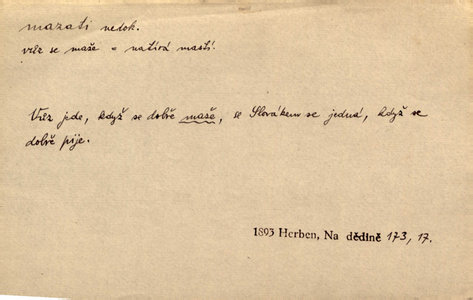 mazati nedok.
vůz se maže = natírá mastí.
Vůz jde, když se dobře maže, se Slovákem se jedná, když se
dobře pije.
1893 Herben, Na dědině 173, 17.